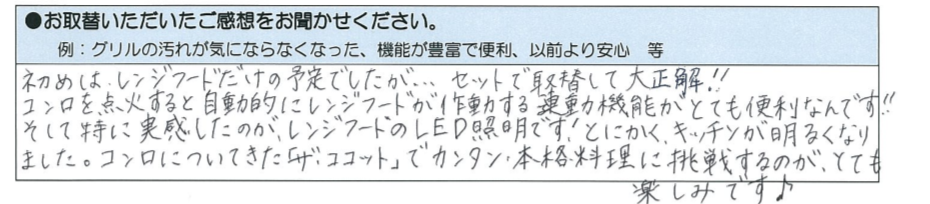 ●お取替いただいたご感想をお聞かせください。
例：グリルの汚れが気にならなくなった、機能が豊富で便利、以前より安心　等
初めは、レンジフードだけの予定でしたが… セットで取替して大正解!!
コンロを点火すると自動的にレンジフードが作動する連動機能がとても便利なんです!!
そして特に実感したのが、レンジフードのLED照明です!とにかく、キッチンが明るくなり
ました。コンロについてきた「ザ・ココット」でカンタン・本格料理に挑戦するのが、とても
楽しみです♪